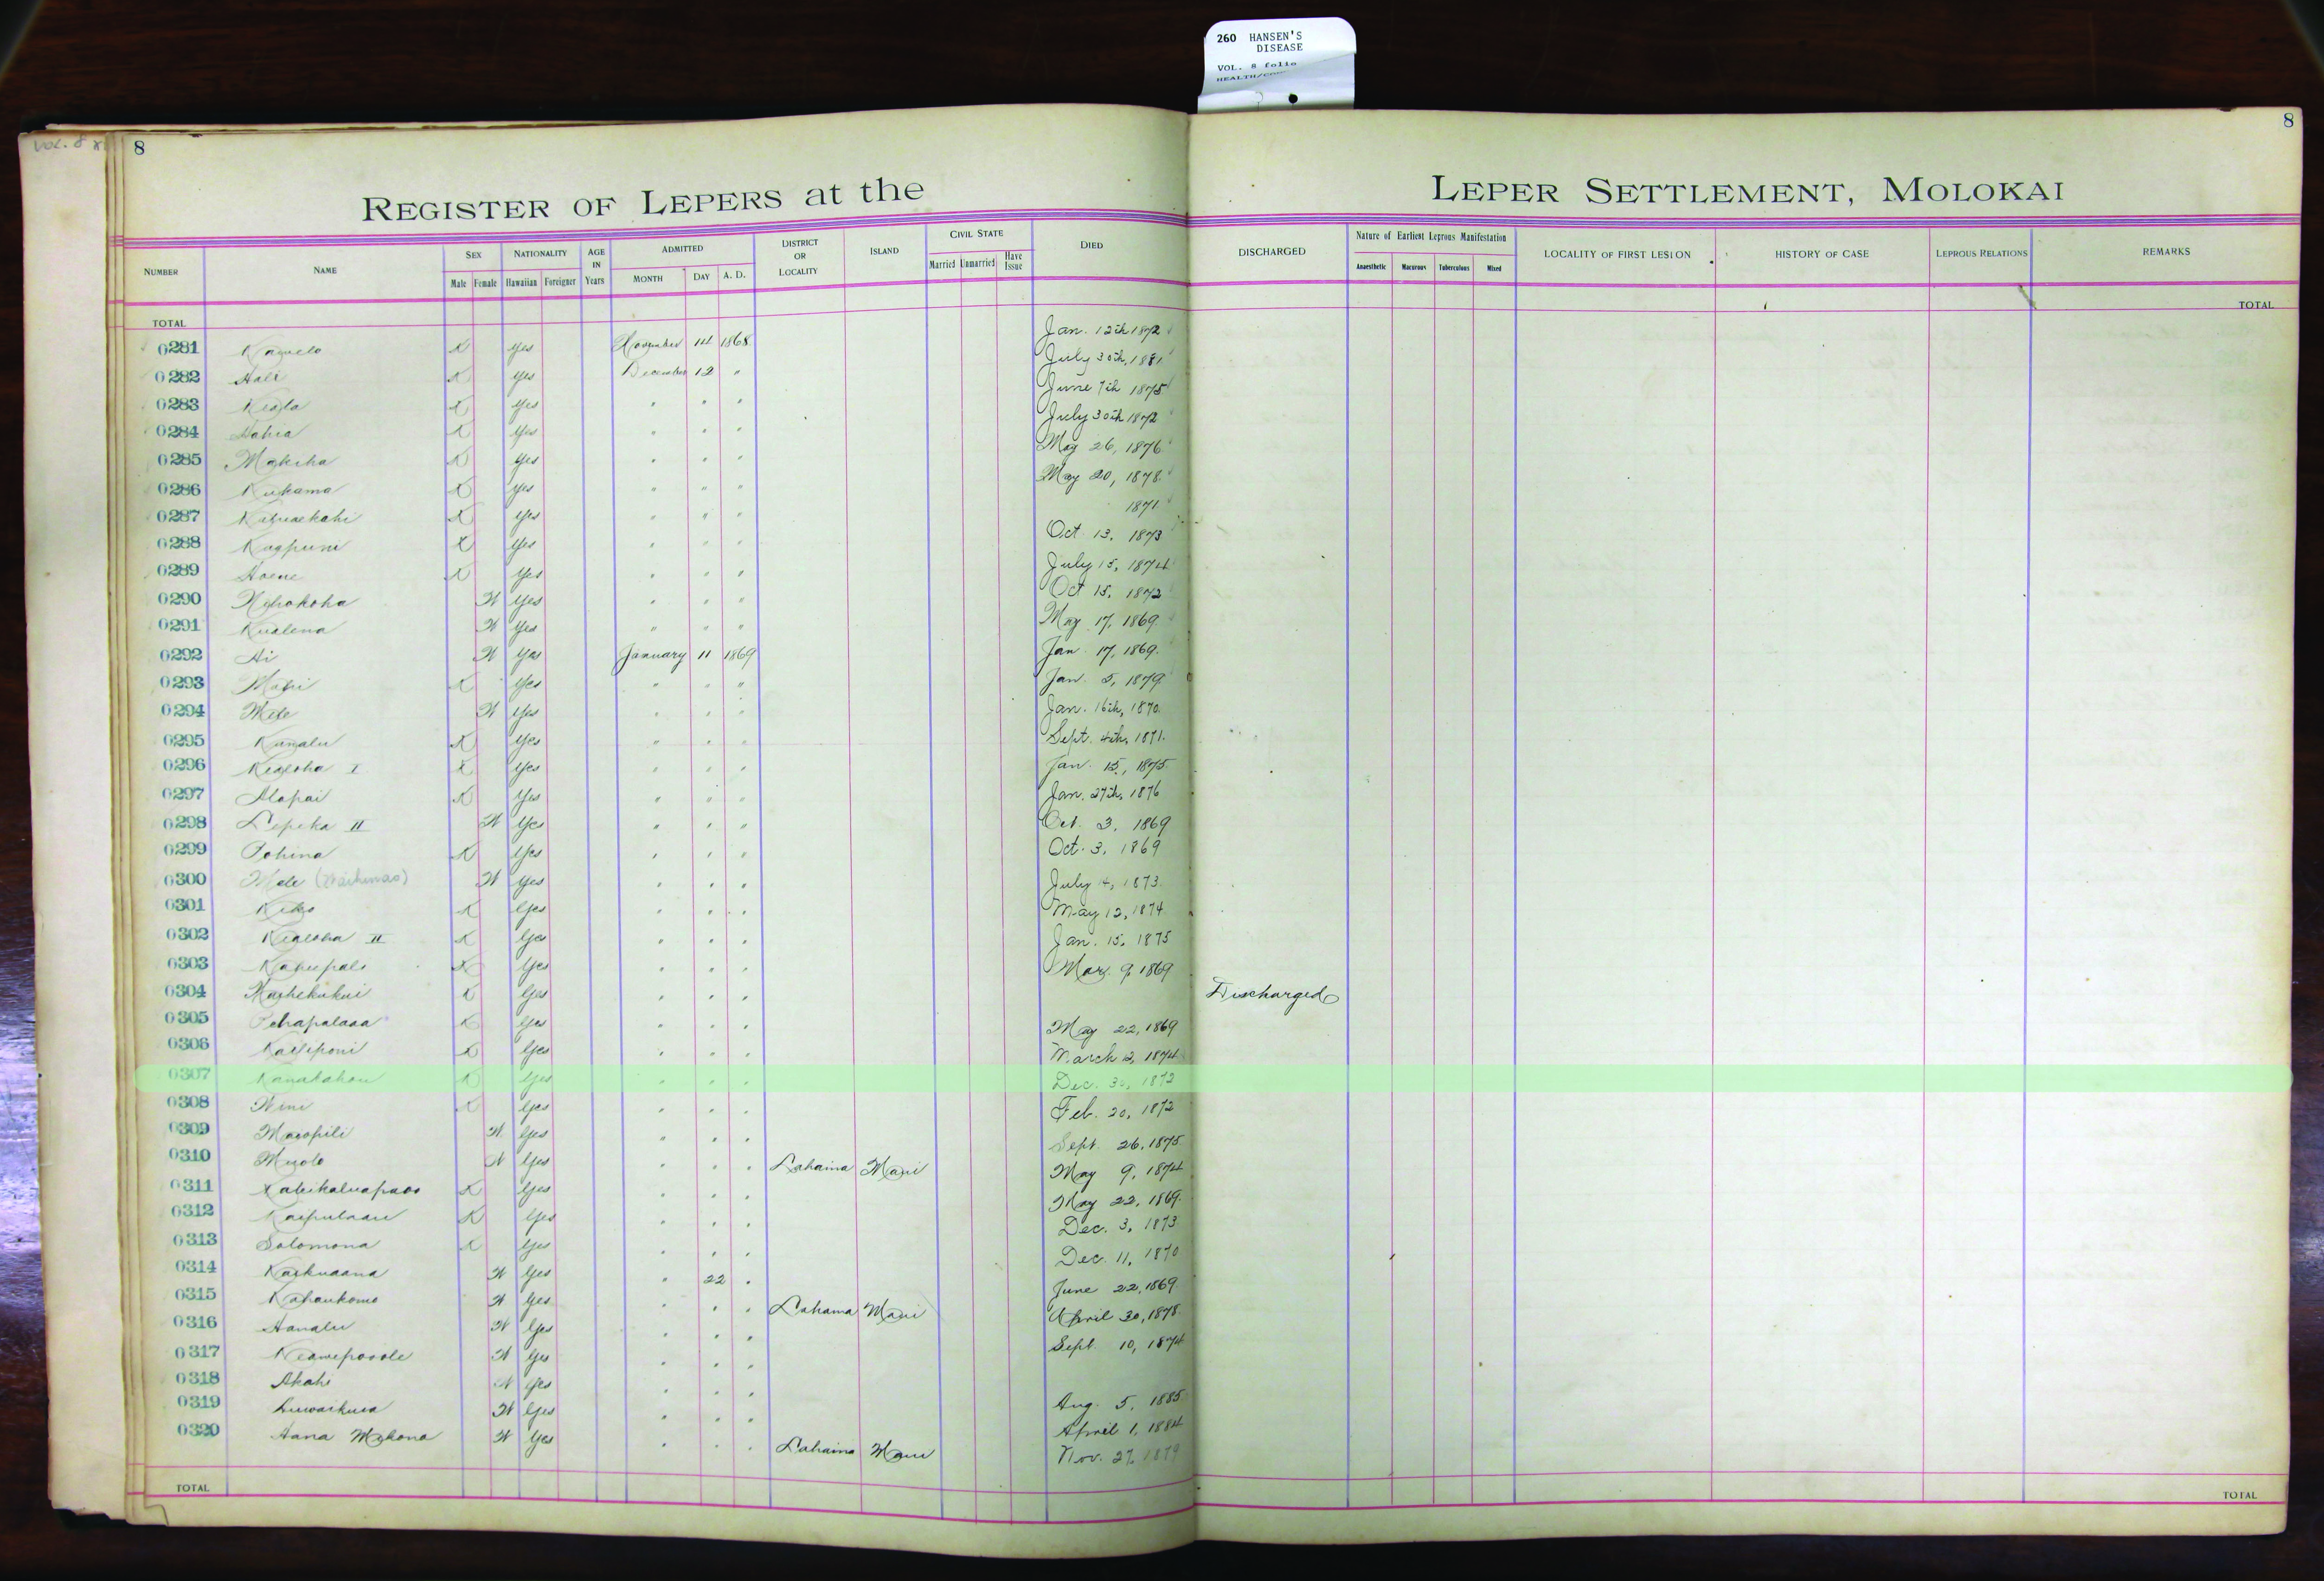 260 HANSEN'S
DISEASE
VOL. 8 folio
Vol. 8
8
8
REGISTER OF LEPERS at the LEPER SETTLEMENT, MOLOKAI
NUMBER NAME SEX Male Female NATIONALITY Hawaiian Foreigner AGE IN Years ADMITTED MONTH DAY A. D. DISTRICT OR LOCALITY ISLAND CIVIL STATE Married Unmarried Have Issue DIED DISCHARGED Nature of Earliest Leprous Manifestation Anaesthetic Macurous Tuberculous Mixed LOCALITY OF FIRST LESION HISTORY OF CASE LEPROUS RELATIONS REMARKS
TOTAL TOTAL
0281 K Yes November 14 1868 Jan. 12th 1872
0282 Hali K Yes December 12 " July 30th, 1881
0283 K Yes " " " June 7th 1875
0284 K Yes " " " July 30th 1872
0285 Makeha K Yes " " " May 26, 1876
0286 Kukama K Yes " " " May 20, 1878
0287 K Yes " " " 1871
0288 Kaapuni K Yes " " " Oct 13, 1873
0289 Hoene K Yes " " " July 15, 1874
0290 W Yes " " " Oct 15, 1872
0291 Kualena W Yes " " " May 17, 1869
0292 Ai W Yes January 11 1869 Jan 17, 1869
0293 K Yes " " " Jan 5, 1879
0294 Mele W Yes " " " Jan. 16th, 1870
0295 K Yes " " " Sept. 4th, 1871
0296 Kealoha I K Yes " " " Jan. 15, 1875
0297 Alapai K Yes " " " Jan. 27th, 1876
0298 Lepeka II W Yes " " " Oct. 3, 1869
0299 Pohina K Yes " " " Oct. 3, 1869
0300 Mele W Yes " " " July 4, 1873
0301 K Yes " " " May 12, 1874
0302 Kealoha II K Yes " " " Jan. 15, 1875
0303 K Yes " " " Mar. 9, 1869
0304 K Yes " " " Discharged
0305 K Yes " " " May 22, 1869
0306 Kailiponi K Yes " " " March 12, 1874
0307 Kanakahou K Yes " " " Dec. 30, 1872
0308 Wini K Yes " " " Feb. 20, 1872
0309 Maoopili W Yes " " " Sept. 26, 1875
0310 W Yes " " " Lahaina Maui May 9, 1874
0311 K Yes " " " May 22, 1869
0312 K Yes " " " Dec. 3, 1873
0313 Solomona K Yes " " " Dec. 11, 1870
0314 Kaikuaana W Yes " 22 " June 22, 1869
0315 W Yes " " " Lahaina Maui April 30, 1878
0316 Hanalu W Yes " " " Sept. 10, 1874
0317 Keawepooole W Yes " " "
0318 Akahi W Yes " " " Aug. 5, 1885
0319 W Yes " " " April 1, 1884
0320 Hana W Yes " " " Lahaina Maui Nov. 27, 1879
TOTAL TOTAL